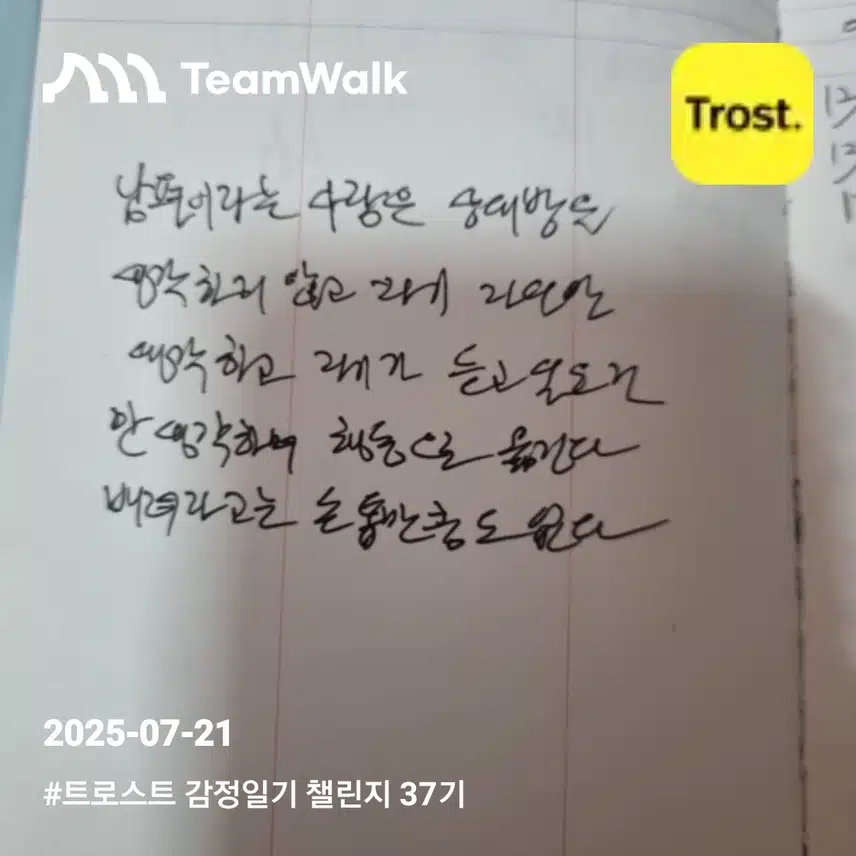 TeamWalk
Trost.
남편이라는 사람은 상대방을
생각하지 않고 자기 자신만
생각하고 자기가 듣고
만 생각하며 행동으로 옮긴다
배려라고는 눈꼽만큼도 없다
2025-07-21
#트로스트 감정일기 챌린지 37기